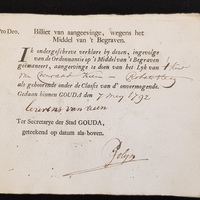 Pro Deo.
Billiet van aangeevinge, wegens het
Middel van 't Begraven.
IK ondergeschreve verklare by deezen, ingevolge
van de Ordonnantie op 't Middel van 't Begraven
geëmaneert, aangeevinge te doen van het Lyk van
als gehoorende onder de Classis van d' onvermogende.
Gedaan binnen GOUDA den 7 mey 1792
van
Ter Secretarye der Stad GOUDA,
geteekend op datum als boven.